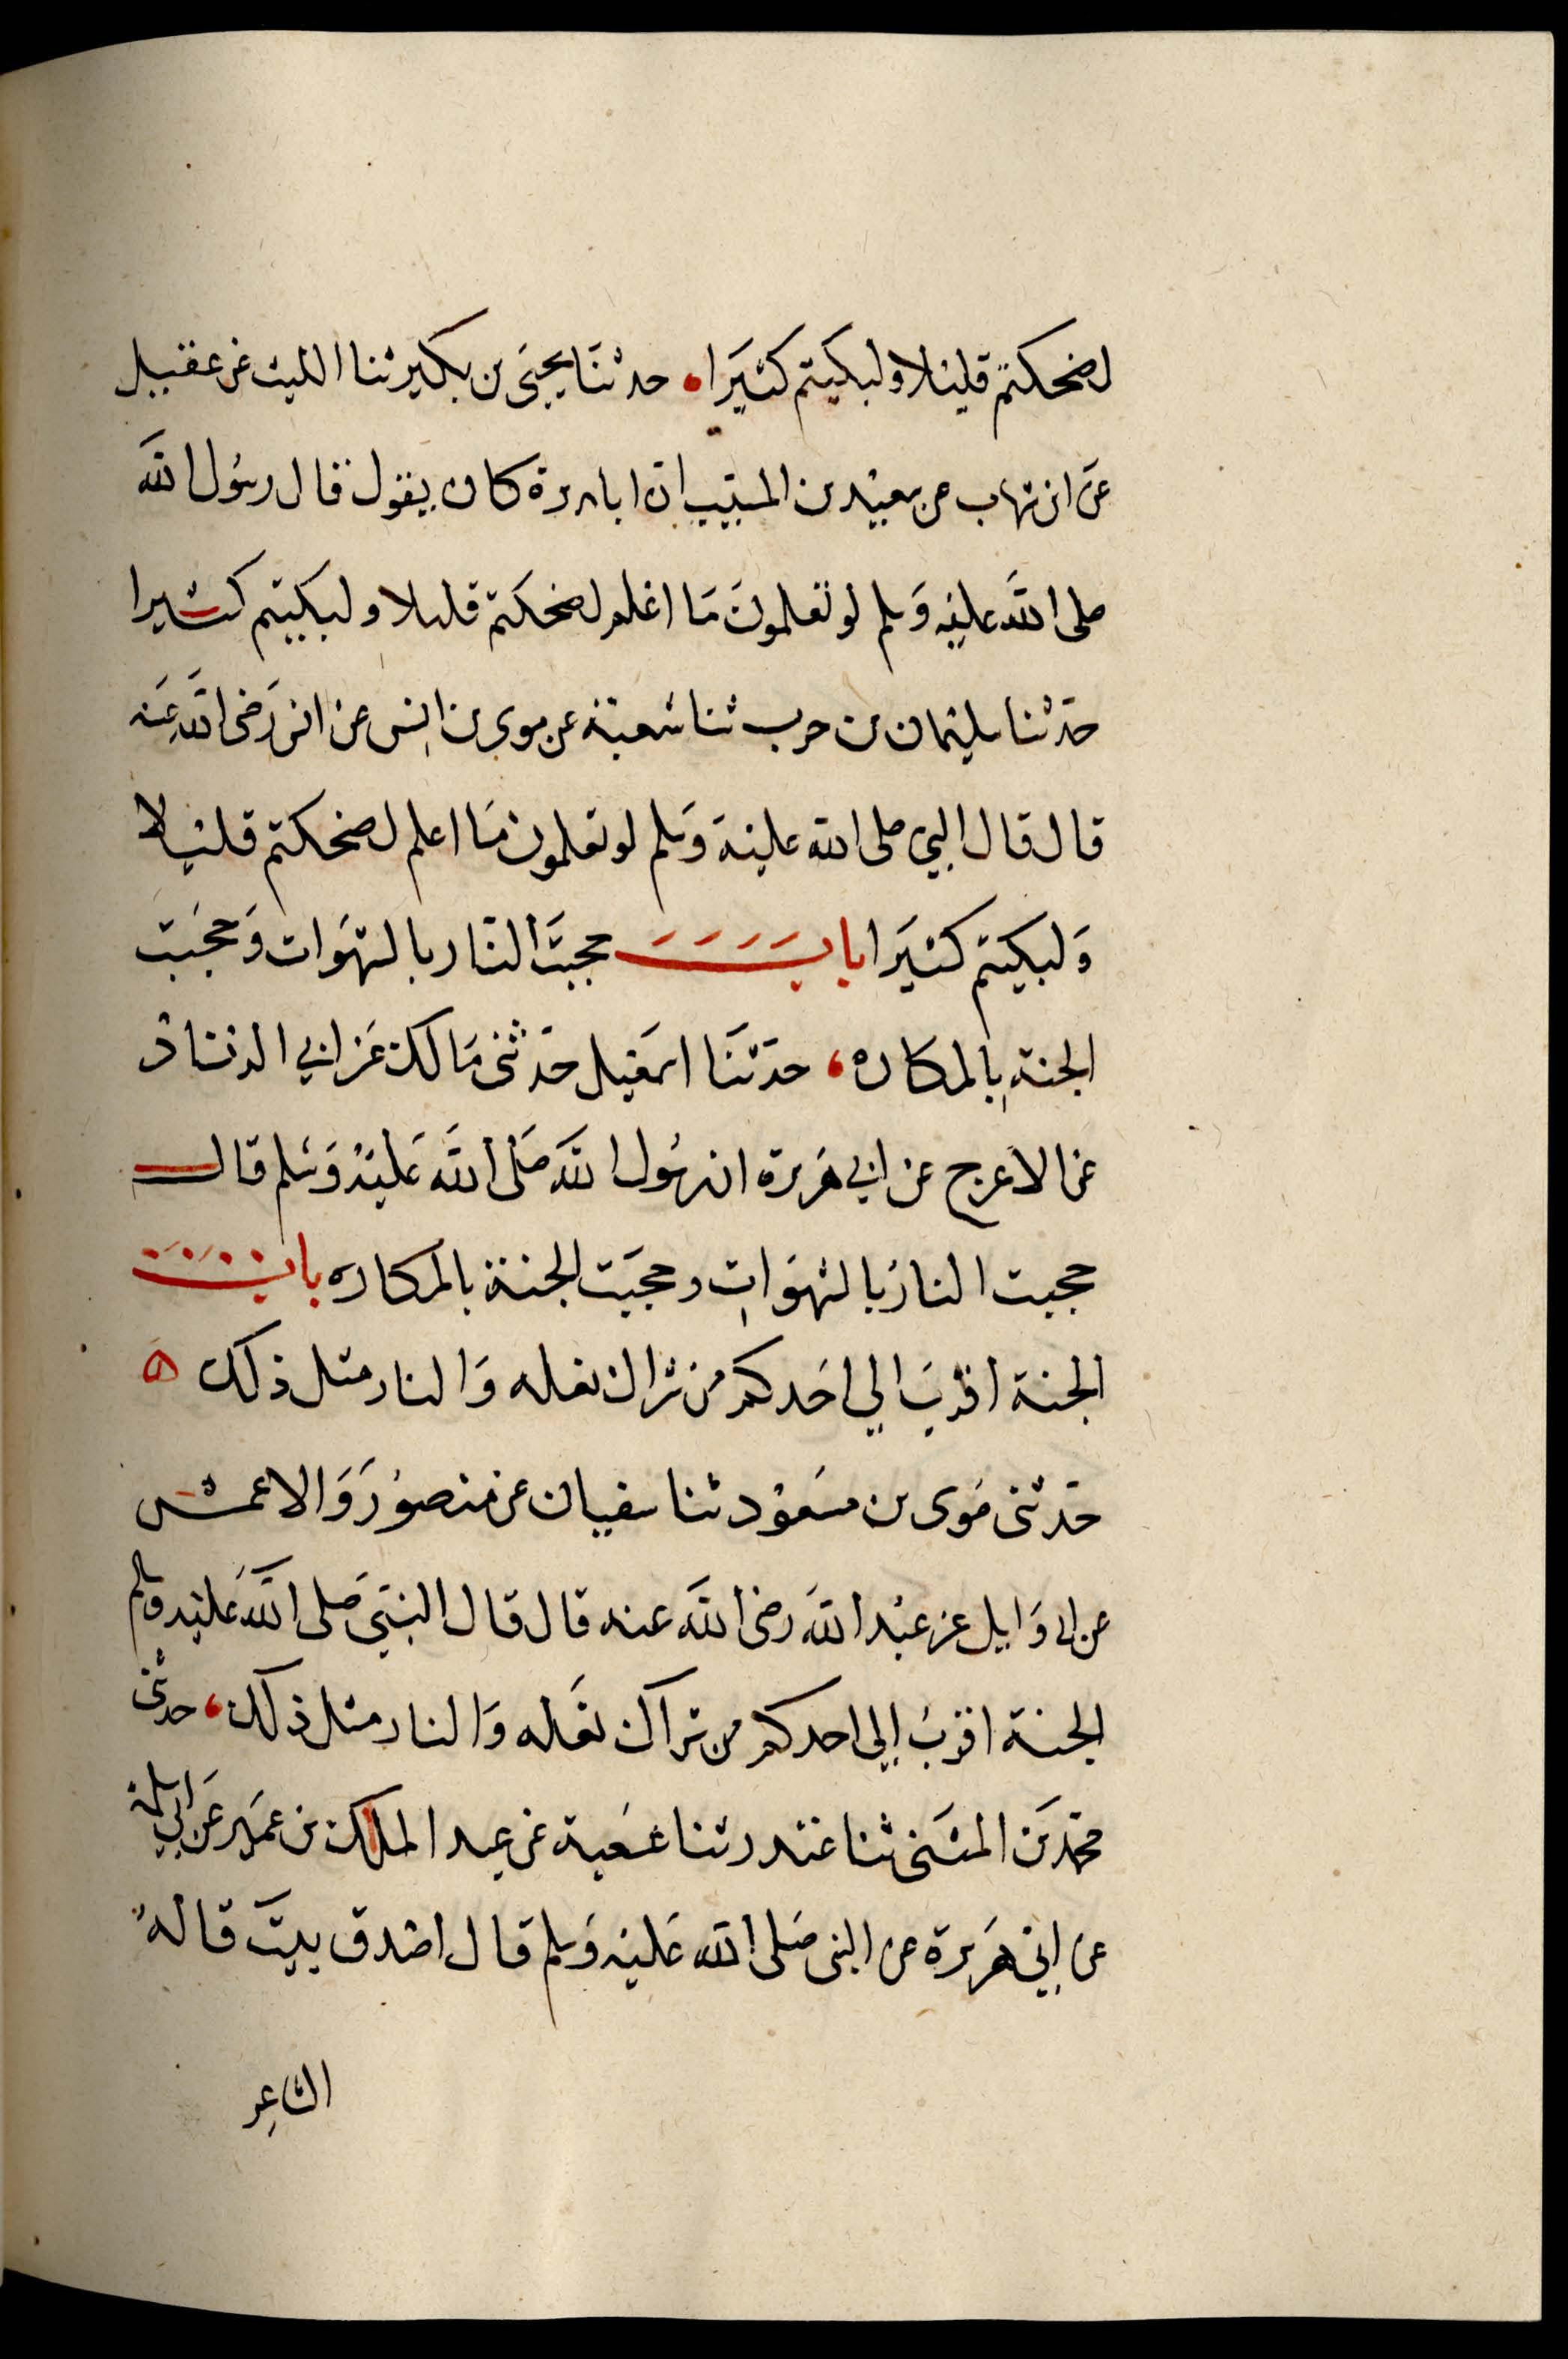 لضحكتم قليلا ولبكيتم كثيرا • حدثنا يحيى بن بكير ثنا الليث عن عقيل
عن ابن شهاب عن سعيد بن المسيب ان ابا هريرة كان يقول قال رسول الله
صلى الله عليه وسلم لو تعلمون ما اعلم لضحكتم قليلا ولبكيتم كثيرا
حدثنا سليمان بن حرب ثنا شعبة عن موسى بن انس عن انس رضى الله عنه
قال قال النبي صلى الله علية وسلم لو تعلمون ما اعلم لضحكتم قليلا
ولبكيتم كثيرا باب حجبت النار بالشهوات وحجبت
الجنة بالمكاره ، حدثنا اسمعيل حدثني مالك عن ابي الزناد
عن الاعرج عن ابي هريرة ان رسول الله صلى الله عليه وسلم قال
حجبت النار بالشهوات وحجبت الجنة بالمكاره باب
الجنة اقرب الي احدكم من شراك نعله والنار مثل ذلك ه
حدثني موسى بن مسعود ثنا سفيان عن منصور والاعمش
عن ابى وايل عن عبد الله رضى الله عنه قال قال النبي صلى الله عليه وسلم
الجنة اقرب إلي احدكم من شراك نعله والنار مثل ذلك ، حدثنى
محمد بن المثنى ثنا غندر ثنا شعبة عن عبد الملك بن عمير عن ابي سلمة
عن ابي هريرة عن النبى صلى الله عليه وسلم قال اصدق بيت قاله
الشاعر